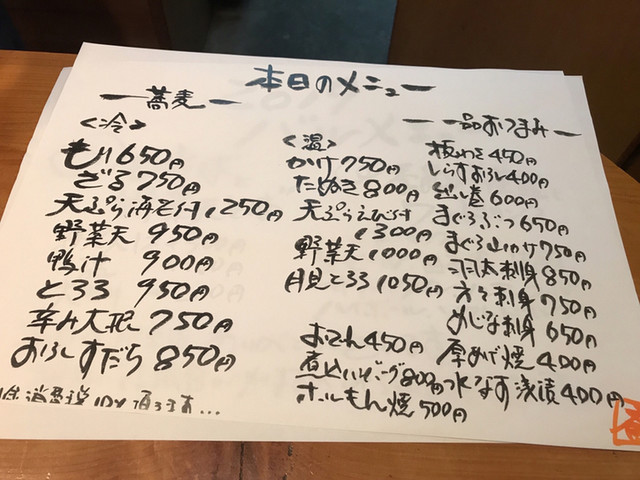 本日のメニュー
ー蕎麦ー
〈冷〉
もり650円
ざる750円
天ぷら海老付1250円
野菜天 950円
鴨汁 900円
とろろ 950円
辛み大根750円
おろしすだち850円
別途消費税10%頂きます...
〈温〉
かけ750円
たぬき800円
天ぷらえび付
1300円
野菜天1000円
月見とろろ1050円
おでん450円
煮込ハンバーグ800円
ホルモン焼500円
ー一品おつまみー
板わさ450円
しらすおろし400円
出し巻600円
まぐろぶつ650円
まぐろ山かけ750円
刺身850円
刺身750円
めじな刺身650円
厚あげ焼400円
水なす浅漬400円